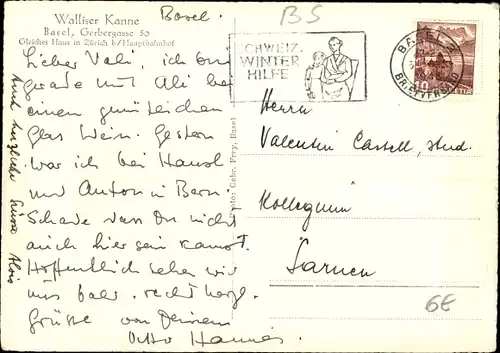 Walliser Kanne
Basel, Gerbergasse 50
Gleiches Haus in Zürich b/Hauptbahnhof
Basel.
BS
SCHWEIZ.
WINTER
HILFE
BASEL 2
BRIEFVERSAND
HELVETIA
Lieber Vali, ich bin
gerade mit Ali bei
einem gemütlichen
Glas Wein. Gestern
war ich bei Hansl
und Anton in Bern.
Schade dass Du nicht
auch hier sein kannst.
Hoffentlich sehen wir
uns bald. recht herzl.
Grüsse von Deinem
Otto Hannes
Auch herzliche Grüsse Alois
Photo: Gebr. Frey, Basel
Herrn
Valentin Castell, stud.
Kollegium
Sarnen
6E